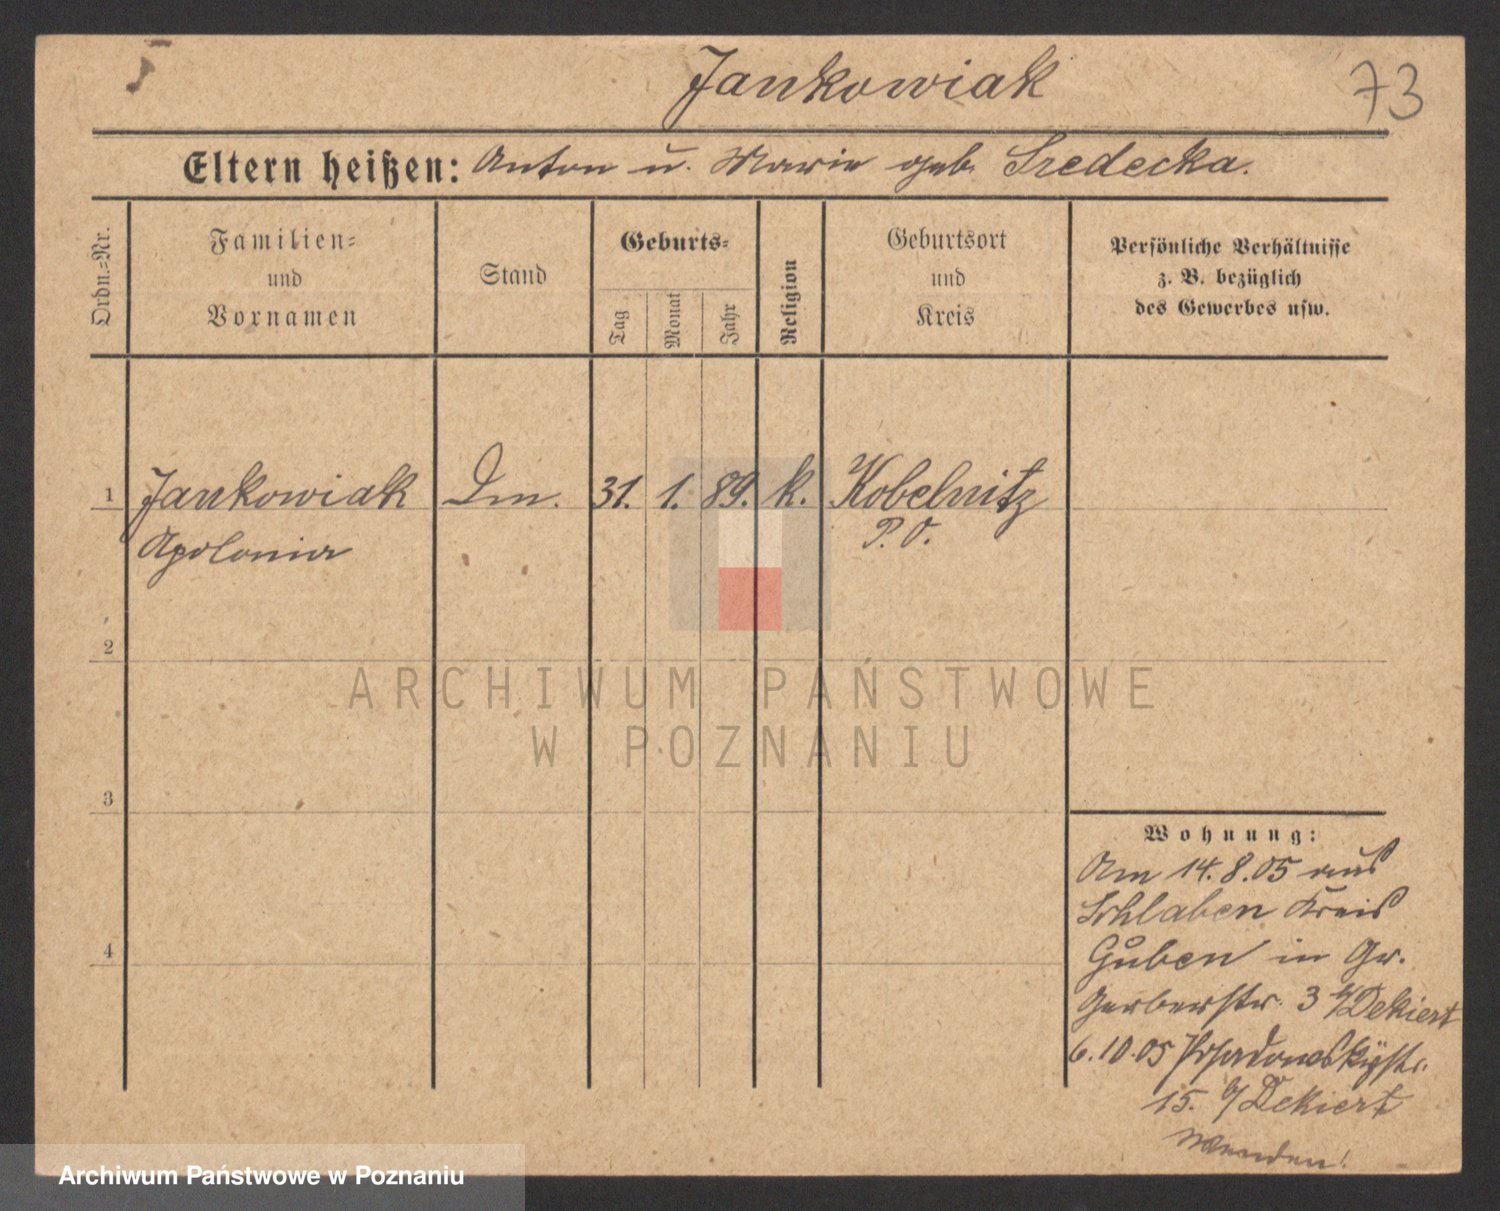 Jankowiak
73
Eltern heißen: Anton u. Marie geb. Sredecka.
Ordn.=Nr.
Familien=
und
Vornamen
Stand
Geburts=
Tag
Monat
Jahr
Religion
Geburtsort
und
Kreis
Persönliche Verhältnisse
z. B. bezüglich
des Gewerbes usw.
1 Jankowiak Dm. 31. 1. 89. k. Kobelnitz
Apolonia P. O.
2
3
4
Wohnung:
Am 14.8.05 aus
Schlaben Kreis
Guben in Gr.
Gerberstr. 3 b/Dekiert
6.10.05 Posadowskystr.
15. b/Dekiert
Wenden!
ARCHIWUM PAŃSTWOWE
W POZNANIU
Archiwum Państwowe w Poznaniu